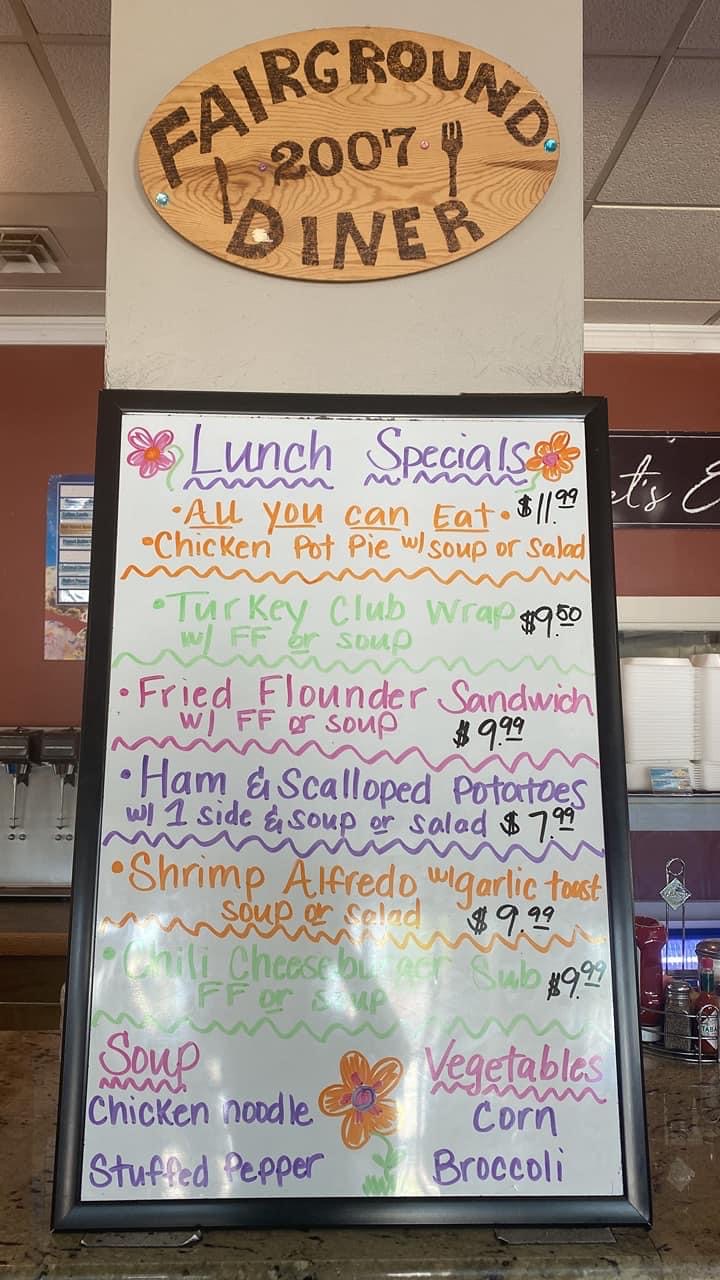 FAIRGROUND
2007
DINER
Lunch Specials
•All You can Eat• $11.99
•Chicken Pot Pie w/ soup or salad
•Turkey Club Wrap $9.50
w/ FF or soup
•Fried Flounder Sandwich
w/ FF or soup $9.99
•Ham & Scalloped Potatoes
w/ 1 side & soup or salad $7.99
•Shrimp Alfredo w/garlic toast
soup or salad $9.99
•Chili Cheeseburger Sub $9.99
FF or soup
Soup
Chicken noodle
Stuffed Pepper
Vegetables
Corn
Broccoli